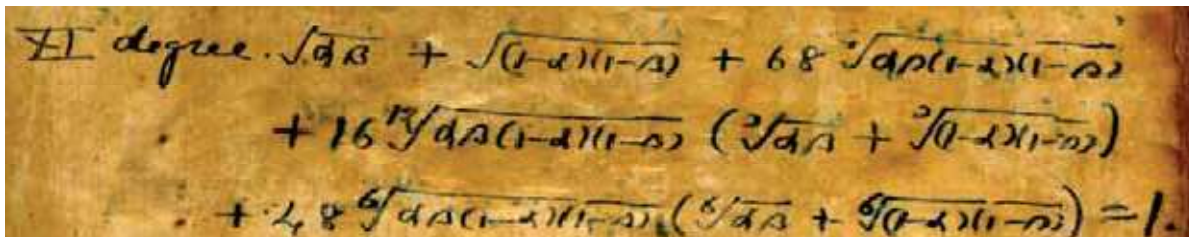 XI degree. √αβ + √(1-α)(1-β) + 68 ⁴√αβ(1-α)(1-β)
+ 16 ¹²√αβ(1-α)(1-β) (³√αβ + ³√(1-α)(1-β))
+ 48 ⁶√αβ(1-α)(1-β) (⁶√αβ + ⁶√(1-α)(1-β)) = 1.